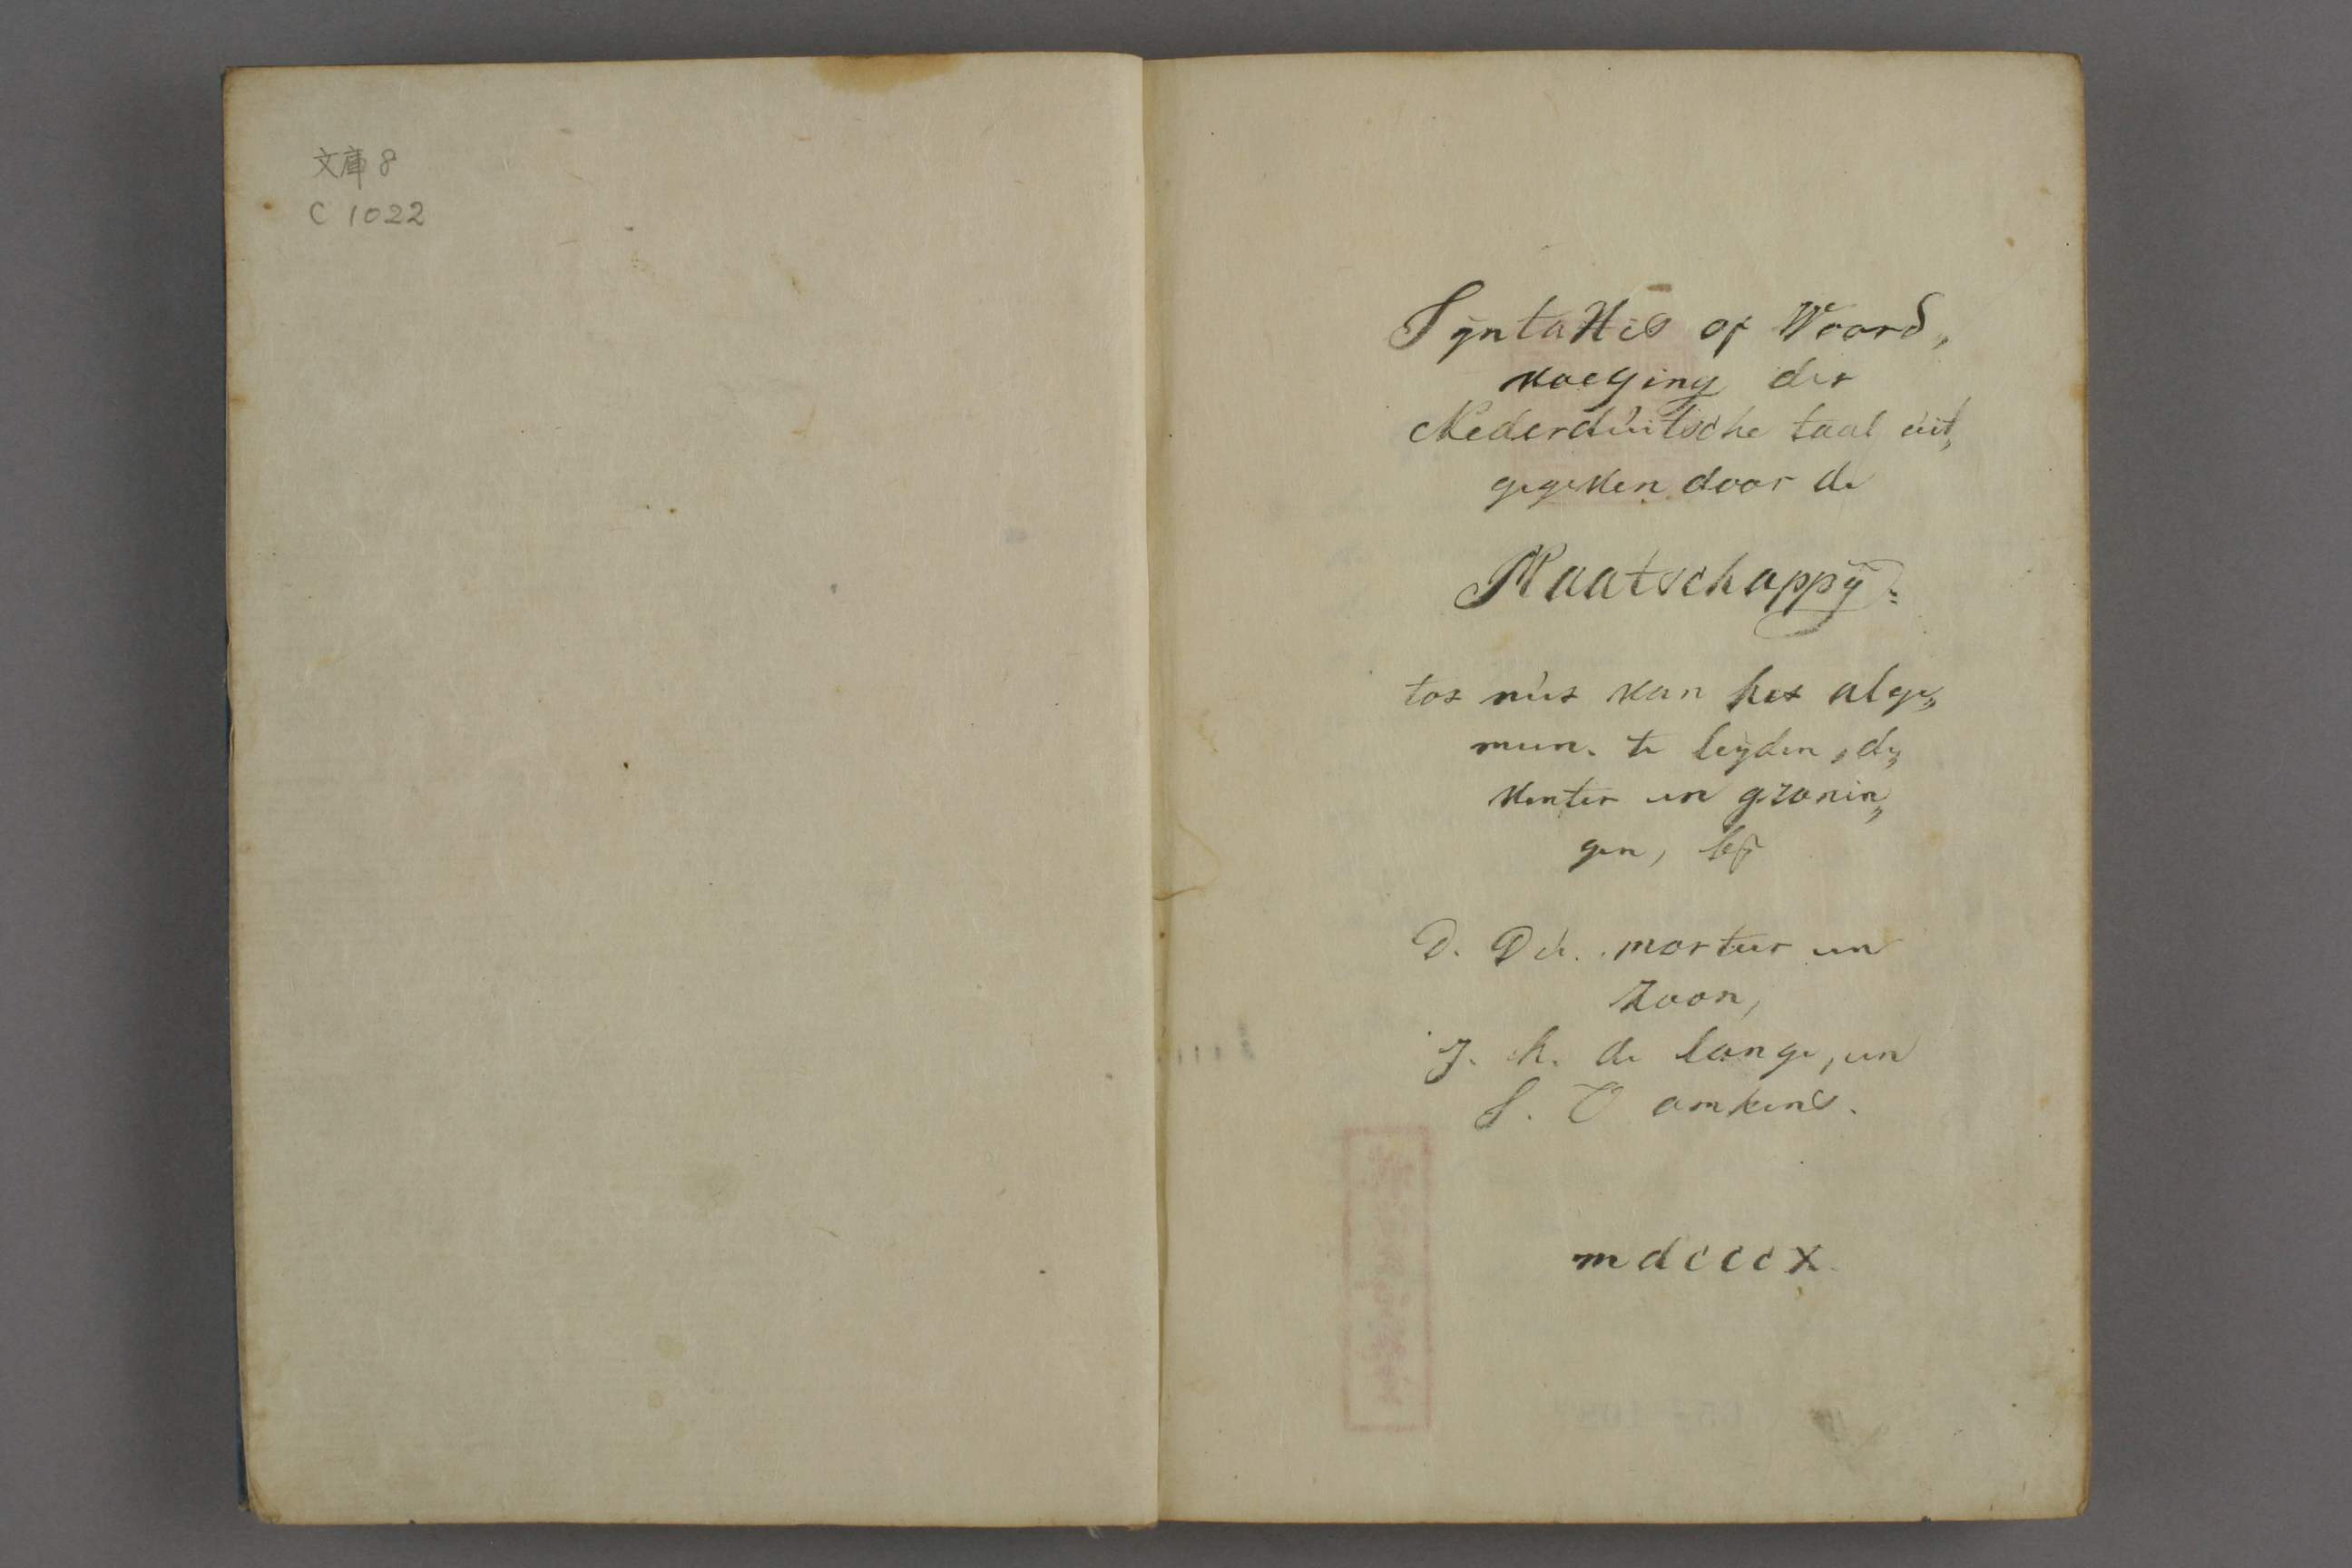 文庫 8
C 1022
Syntaxis of Woord,
voeging der
Nederdúitsche taal úit,,
gegeven door de
Maatschappÿ:
tot nút van het alge,,
meen. te leÿden, de,,
venter en gronin,,
gen, bÿ
D. Dú. mortier en
zoon,
J. h. de lange, en
J. Oomkens.
mdcccx.